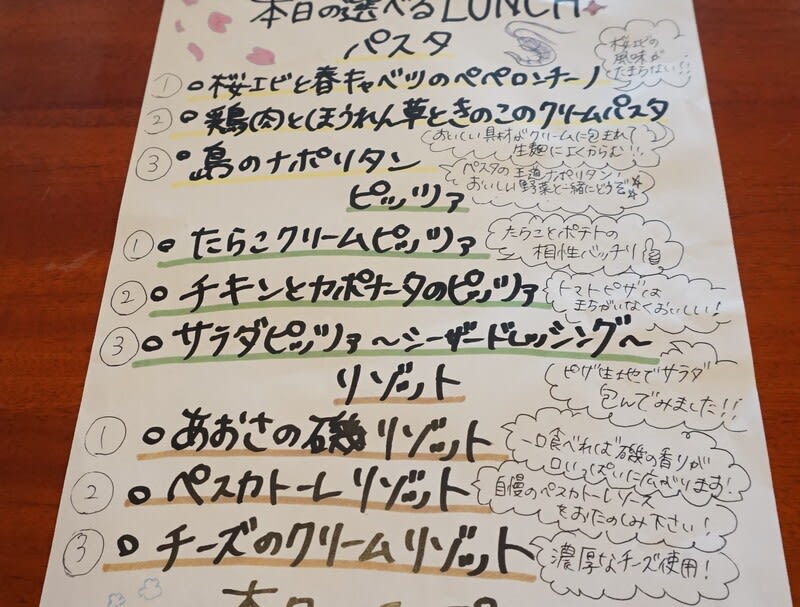 本日の選べるLUNCH
パスタ
① 桜エビと春キャベツのペペロンチーノ
桜エビの
風味が
たまらない!!
② 鶏肉とほうれん草ときのこのクリームパスタ
おいしい具材がクリームに包まれて
生麺によくからむ!!
③ 島のナポリタン
パスタの王道ナポリタン!
おいしい野菜と一緒にどうぞ☆
ピッツァ
① たらこクリームピッツァ
たらことポテトの
相性バッチリ
② チキンとカポナータのピッツァ
トマトピザは
まちがいなくおいしい!
③ サラダピッツァ〜シーザードレッシング〜
ピザ生地でサラダ
包んでみました!!
リゾット
① あおさの磯リゾット
一口食べれば磯の香りが
口いっぱいに広がります!
② ペスカトーレリゾット
自慢のペスカトーレソース
をおたのしみ下さい!
③ チーズのクリームリゾット
濃厚なチーズ使用!
本日